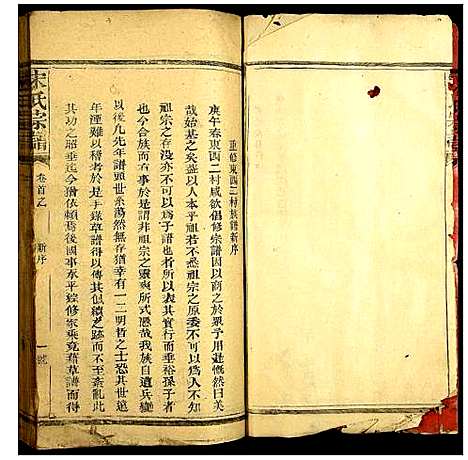 重修東西二村族譜新序
庚午春東西二村咸欲倡修宗譜因以商於余予慨然曰美
哉始基之矣盖人本乎祖若不悉祖宗之原委不可以為人不知
祖宗之存没亦不可以為子譜也者所以表其實行而垂裕孫子者
也今合族而右事於是謂非祖宗之靈爽所式憑哉我族自遭兵燹
以後凡先年譜頭世系蕩然無存猶幸有一二明哲之士恐其世遠
年湮難以稽考於是手錄草譜得以傳其似續之跡而不至紊亂此
其功之昭垂迄今猶依賴焉後國事承平錠修家乘竟藉草譜而得
宋氏宗譜
卷首之
新序
一號